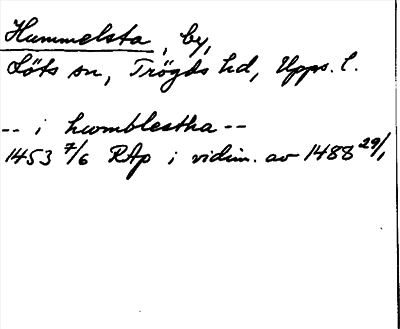 Hummelsta, by,
Löts sn, Trögds hd, Upps. l.
-- i hwmblestha --
1453 7/6 RAp i vidim. av 1488 29/1